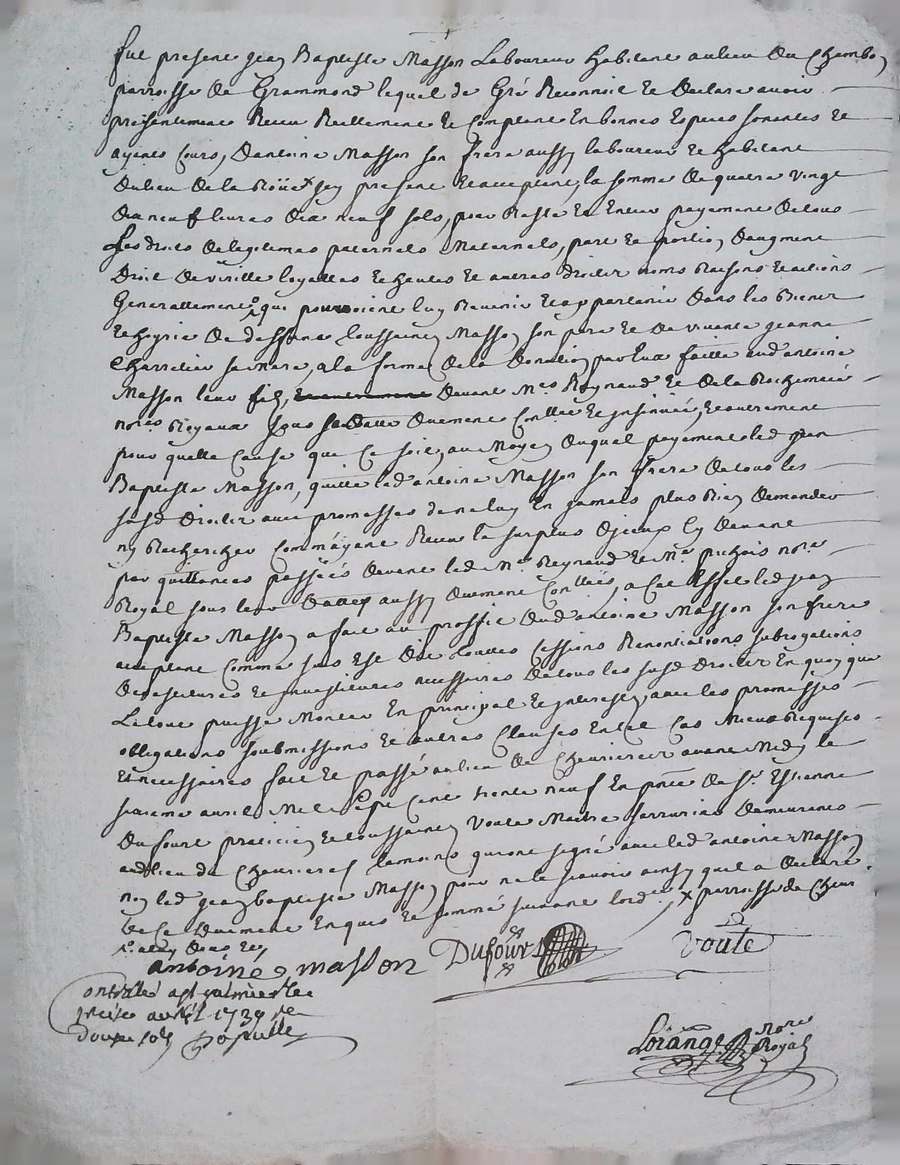 fut present jean Baptiste Masson Laboureur habitant au lieu du Chambo
parroisse de Grammond lequel de Gré Reconnoit et declare avoir
présentement Receu Reellement et Comptant En bonnes Especes sonantes et
ayents Cours, dantoine Masson son frere aussy laboureur et habitant
dulieu de la Roüe x sy present et acceptant, la somme de quatre vingt
dix neuf livres dix neuf sols, pour Reste et Entier payement de tous
Les droits de legitimes paternels Maternels, part et portion daugment
Droit de virille loyalles et autres droits noms Raisons et actions
Generallement que pouroient luy Revenir et apartenir dans les Biens
et hoyrie de deffunt toussainct Masson son pere et de vivante jeanne
Charretier sa mere, a la forme de la donation par Eux faitte aud antoine
Masson leur fils, devant Mes Reynaud et de la Rochemée
nores Royaux sous sa datte duement Contllée et jnsinuée, et autrement
pour quelle Cause que Ce soit, au moyen duquel payement led jean
Baptiste Masson, quitte led antoine Masson son frere de tous les
susd droits avec promesses de ne luy En jamais plus Rien demander
ny Rechercher Comm ayant Receu le surplus djceux Cy devant
par quittances passées devant led Me Reynaud et Me pichois nore
Royal sous leur dattes aussy duement Contllées, a Cet Effet led jean
Baptiste Masson a fait au proffit dud antoine Masson son frere
acceptant Comme sus Est dit touttes Cessions Renontiations subrogations
devestures et jnvestitures necessaires de tous les susd droits En quoy que
Le tout puisse Monter En principal et jnterest, avec les promesses
obligations soubmissions et autres Clauses En tel Cas Mieux Requises
Et necessaires fait et passé au lieu de Chevrieres avant Midy le
avril Mil sept Cent trente neuf En pnce de Sr Estienne
Dufourt praticien et toussainct Voute Maitre serrurier demeurants
aud lieu de Chevrieres temoins qui ont signé avec led antoine Masson
non led jean baptiste Masson pour ne le scavoir ainsy quil a declaré
de Ce duement Enquis et sommé suivant lord ce x parroisse de Chevr
antoine masson Dufour voute
Controllé a st galmier le
treize avril 1739 Re
douze sols
Lorange nore
Royal